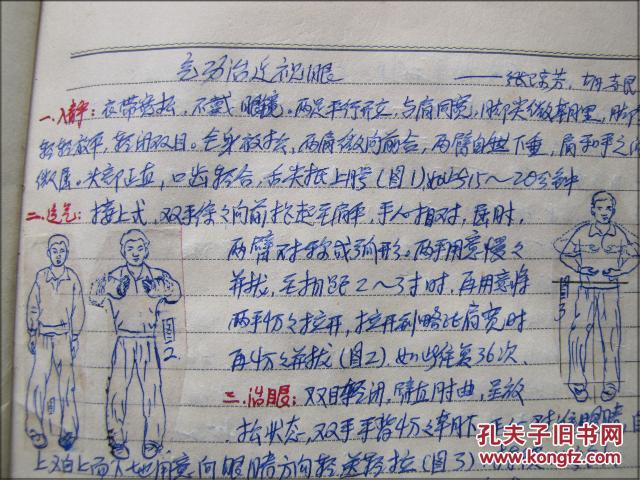 气功治近视眼
——张宗芳、胡吉民
一、入静：衣带宽松，不戴眼镜。两足平行开立，与肩同宽，脚尖微朝里，脚
轻轻放平，轻闭双目。全身放松，两肩微向前合，两臂自然下垂，肩和手之
微屈。头部正直，口齿轻合，舌尖抵上腭（图1）如此约15～20分钟
二、运气：接上式，双手徐徐向前抬起至肩平，手心相对，屈肘，
两臂对称成弓形。两手用意慢々
并拢，至相距2～3寸时，再用意将
两手々拉开，拉开到略比肩宽时
再々并拢（图2）。如此往复36次。
三、治眼：双目轻闭，臂血肘曲，呈放
松状态，双手手背々朝下
上而下地用意向眼睛方向轻送轻拉（图3）
图2
图3
孔夫子旧书网
www.kongfz.com